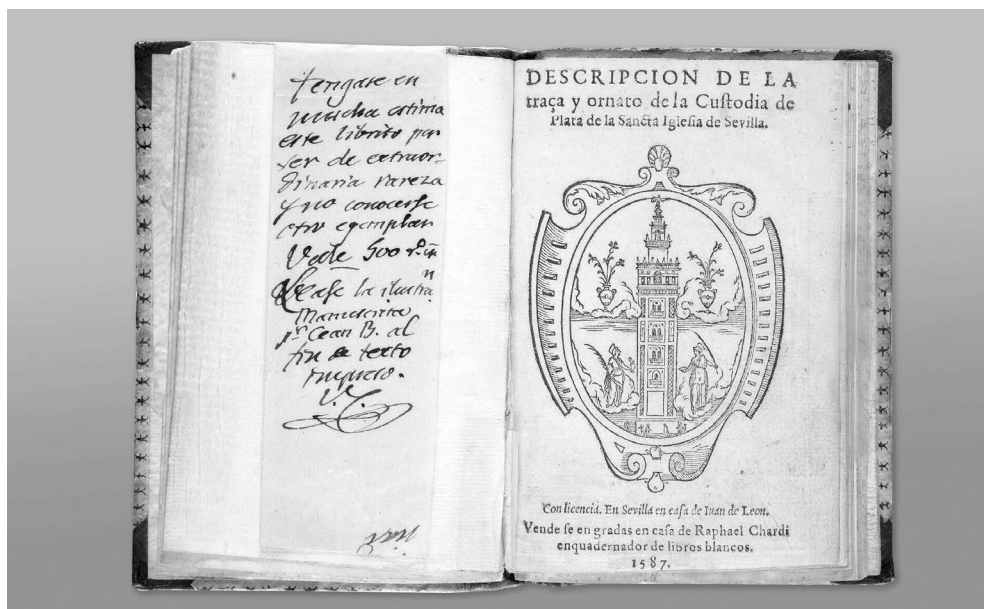 tengase en
mucha estima
este librito por
ser de extraor-
dinaria rareza
y no conocerse
otro egemplar
Vale 500 r.
Vease la ilustra.n
manuscrita
pr Cean B. al
fin de texto
impreso.
V. C.
DESCRIPCION DE LA
traça y ornato de la Cuſtodia de
Plata de la Sancta Igleſia de Sevilla.
Con licencia. En Sevilla en caſa de Iuan de Leon.
Vende ſe en gradas en caſa de Raphael Chardi
enquadernador de libros blancos.
1587.